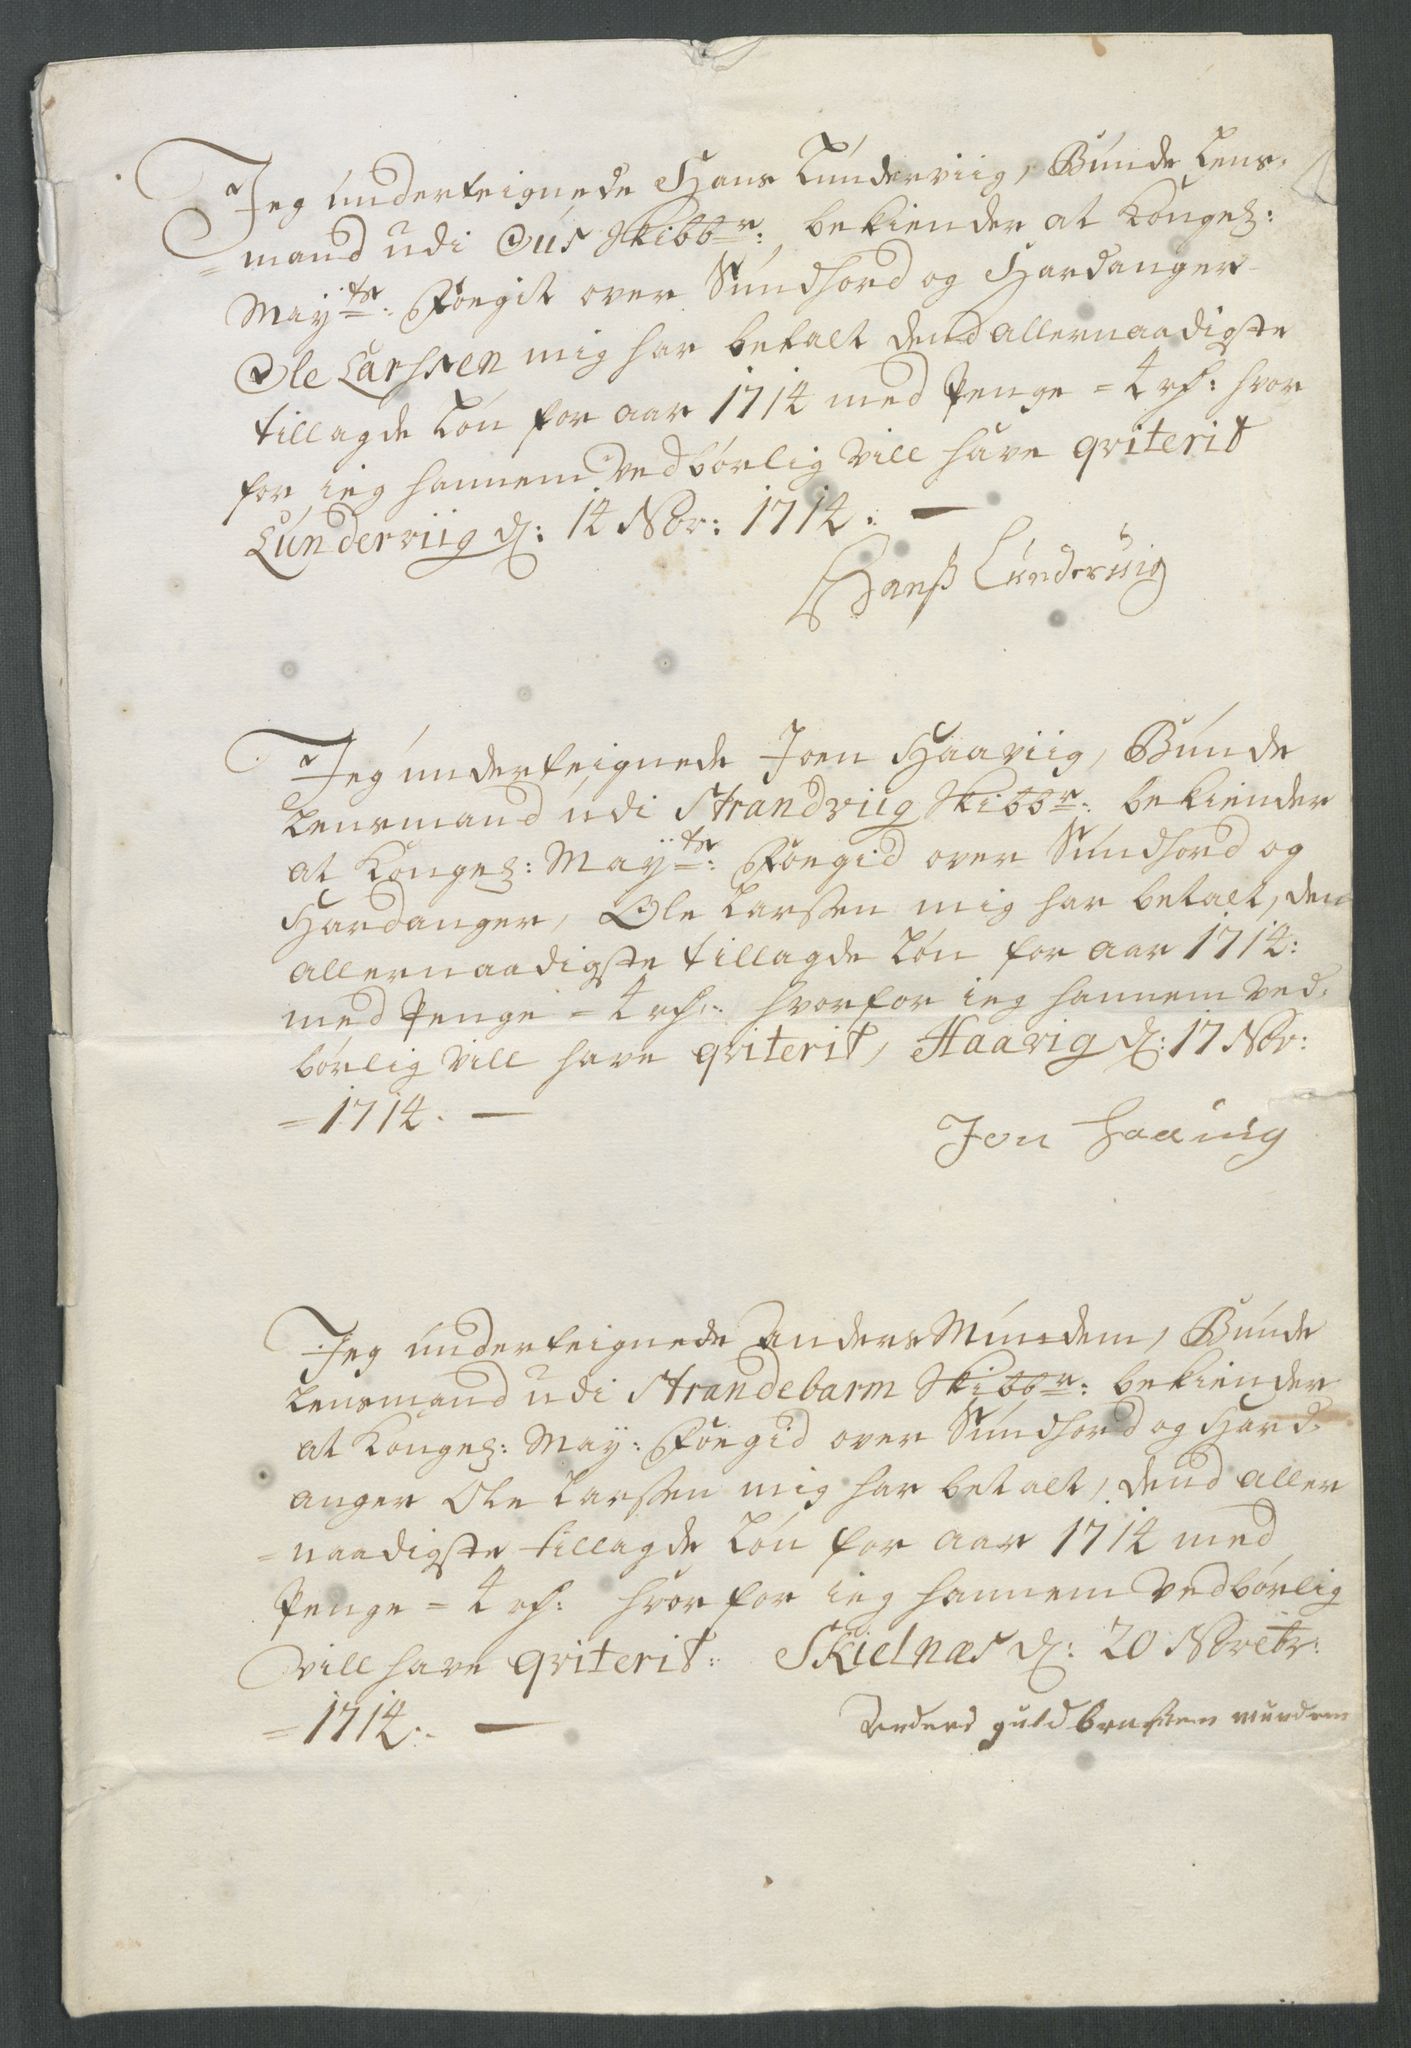 Jeg underteignede Hans Lunderviig, Bunde Lens-
mand udi Øus Skibbr: bekiender at Kongel:
Mayts: Foegit over Sundhord og Hardanger
Ole Larhsen mig har betalt dend allernaadigste
tillagde Løn for aar 1714 med Penge = 4 rf: hvor
for ieg hannem vedbørlig vill have qviterit
Lunderviig d: 14 Nov: 1714: —
Hansß Lunderviig
Jeg underteignede Joen Haaviig, Bunde
Lensmand udi Strandviig Skibbr: bekiender
at Kongel: Mayts: Foegid over Sundhord og
Hardanger, Ole Larssen mig har betalt, den
allernaadigste tillagde Løn for aar 1714:
med Penge = 4 rf: hvorfor ieg hannem ved-
børlig vill have qviterit, Haavig d: 17 Nov:
= 1714. —
Jon Haauig
Jeg underteignede Anders Mundem, Bunde
Lensmand udi Strandebarm Skibbr: bekiender
at Kongel: May: Foegid over Sundhord og Hard-
anger Ole Larssen mig har betalt, dend aller
= naadigste tillagde Løn for aar 1714 med
Penge = 4 rf: hvorfor ieg hannem vedbørlig
vill have qviterit: Skielnæs d: 20 Novebr:
= 1714: —
Anders guldbransen mundem